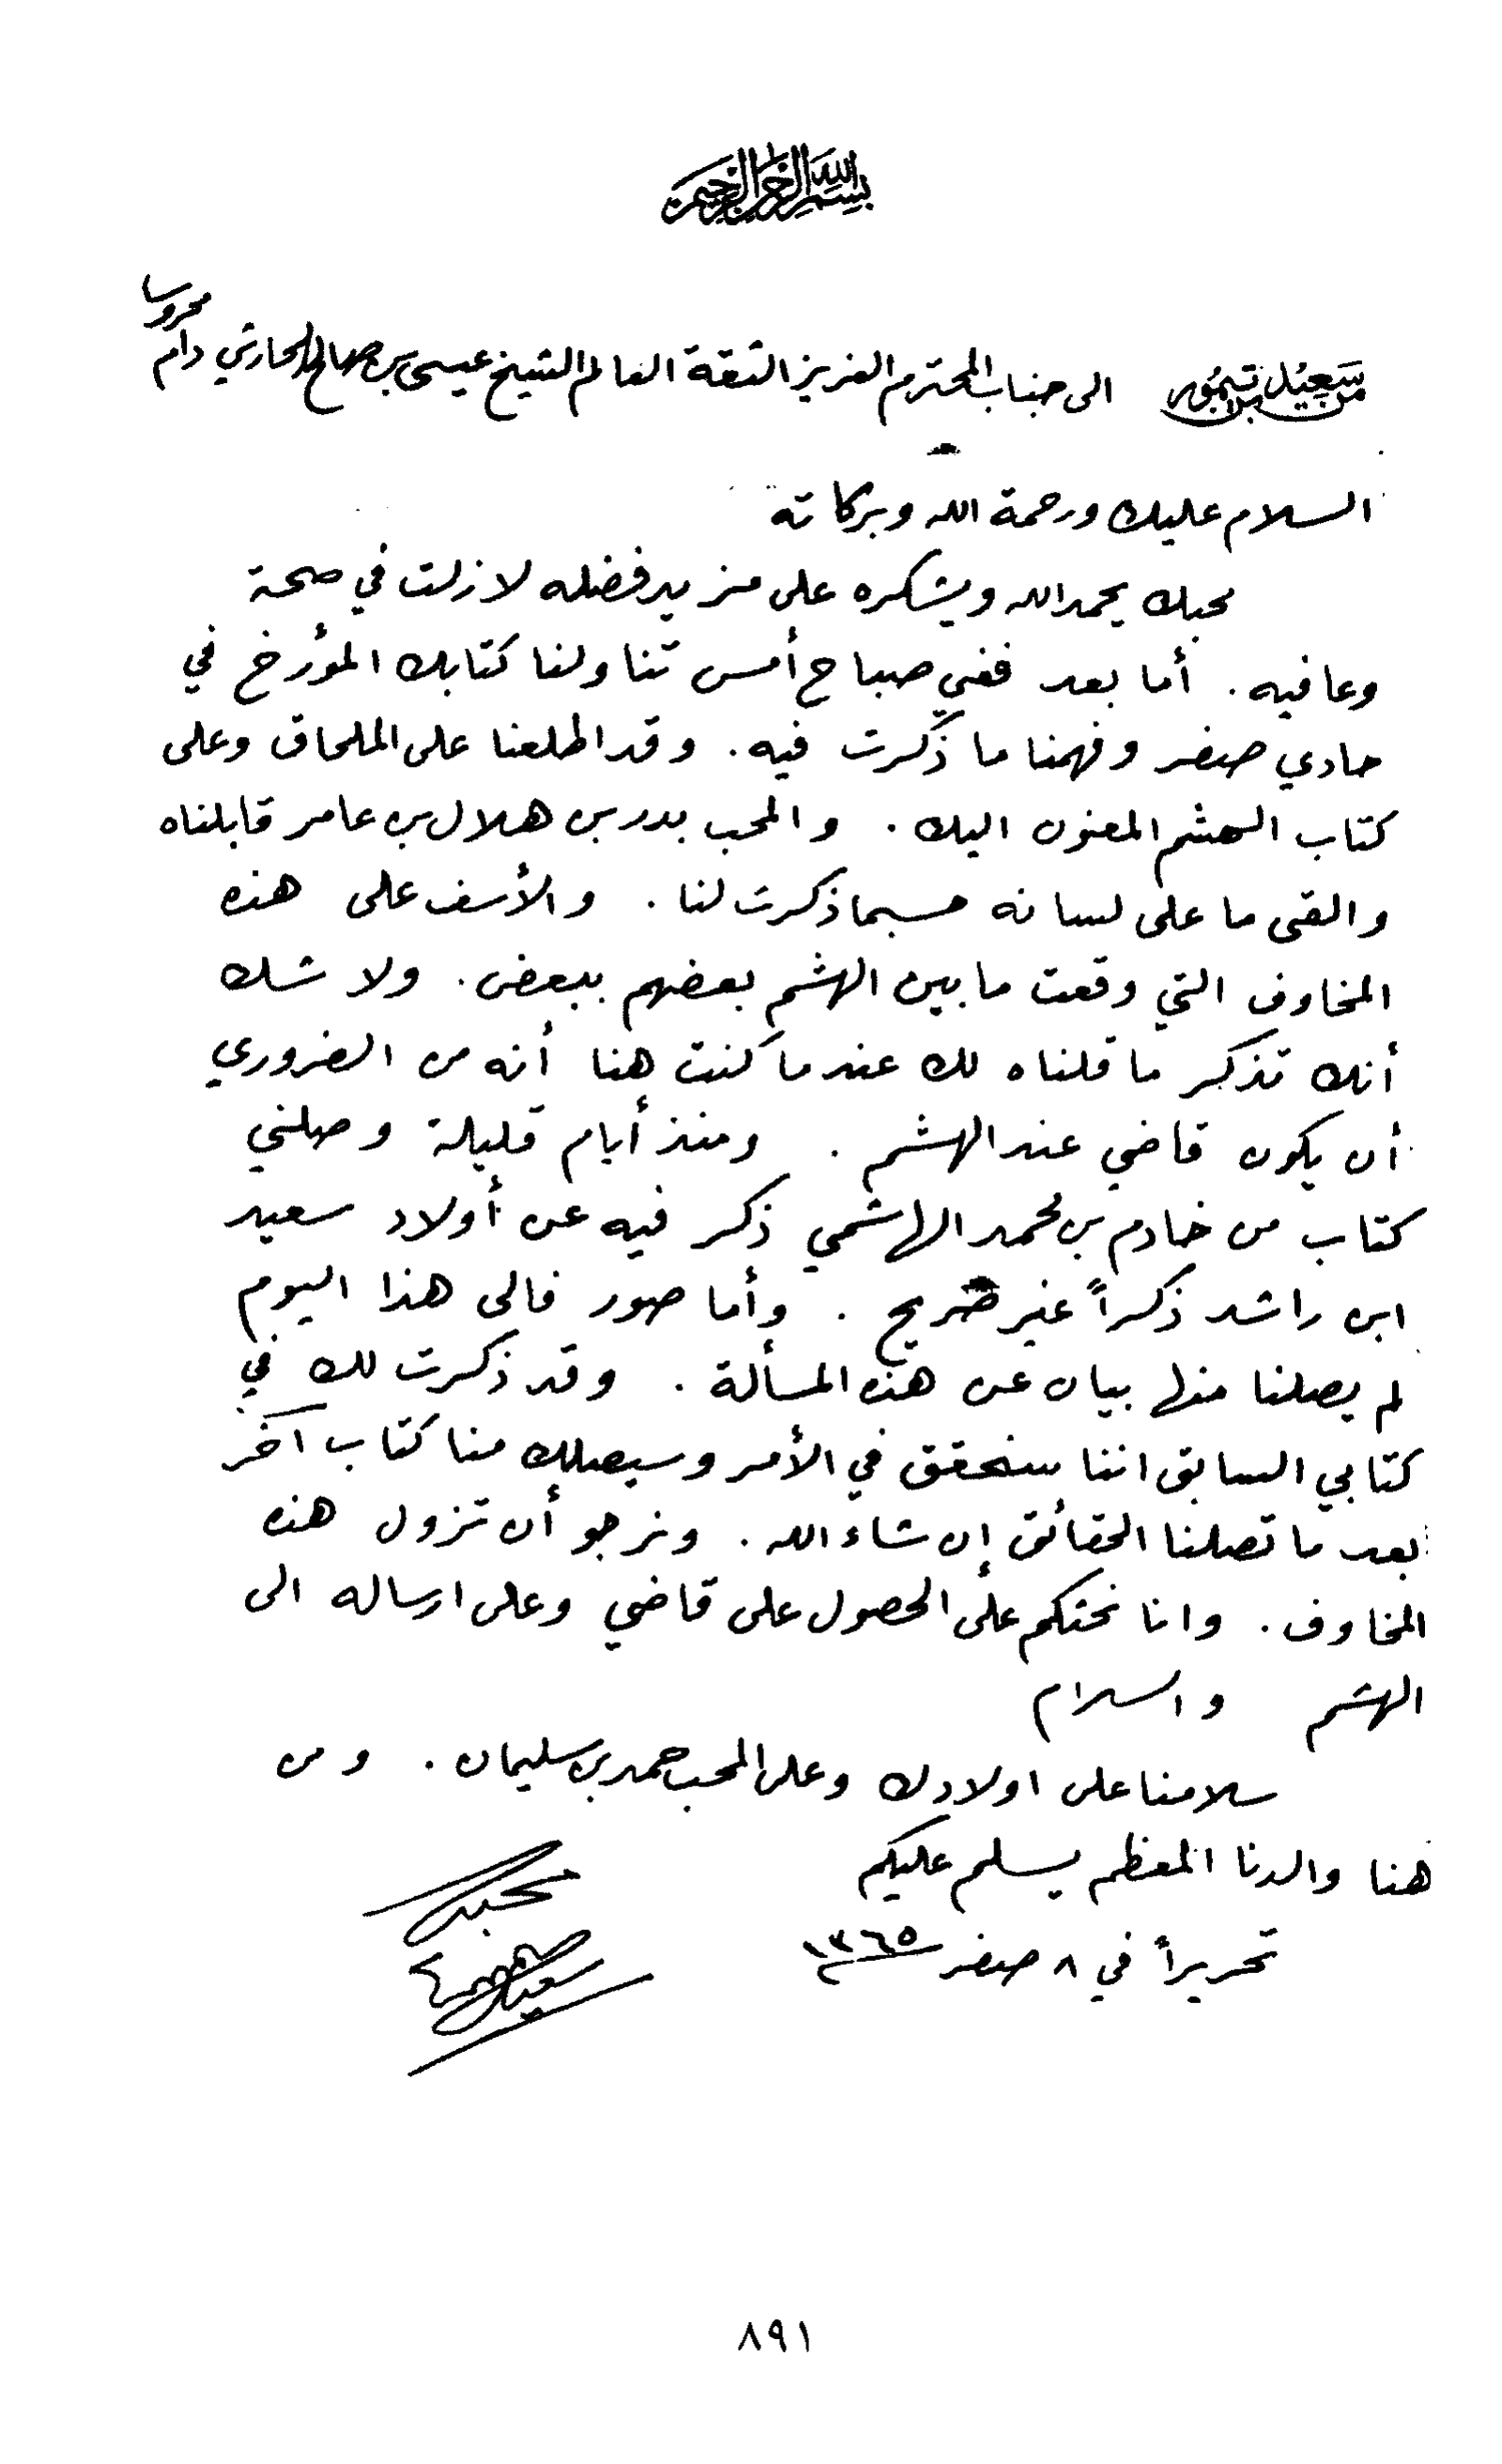 بسم الله الرحمن الرحيم
من سعيد بن تيمور الى جناب المحترم العزيز الثقة العالم الشيخ عيسى بن صالح الحارثي دام محروسا
السلام عليك ورحمة الله وبركاته
محبك يحمد الله ويشكره على مزيد فضله لا زلت في صحة
وعافيه . أما بعد ففي صباح أمس تناولنا كتابك المؤرخ في
حادي صفر وفهمنا ما ذكرت فيه . وقد اطلعنا على الملحاق وعلى
كتاب الهشم المعنون اليك . والمحب بدر بن هلال بن عامر قابلناه
والقى ما على لسانه حسبما ذكرت لنا . والأسف على هذه
المخاوف التي وقعت ما بين الهشم بعضهم ببعض . ولا شك
أنك تذكر ما قلناه لك عندما كنت هنا أنه من الضروري
أن يكون قاضي عند الهشم . ومنذ أيام قليلة وصلني
كتاب من خادم بن محمد الهاشمي ذكر فيه عن أولاد سعيد
ابن راشد ذكراً غير صريح . وأما صور فالى هذا اليوم
لم يصلنا منها بيان عن هذه المسألة . وقد ذكرت لك في
كتابي السابق اننا سنحقق في الأمر وسيصلك منا كتاب آخر
بعد ما تصلنا الحقائق إن شاء الله . ونرجو أن تزول هذه
المخاوف . وانا نحثكم على الحصول على قاضي وعلى ارساله الى
الهشم والسلام
سلامنا على اولادك وعلى المحب حمد بن سليمان . ومن
هنا والدنا المعظم يسلم عليكم
محبك
تحريراً في ٨ صفر ١٣٦٥
سعيد بن تيمور
٨٩١